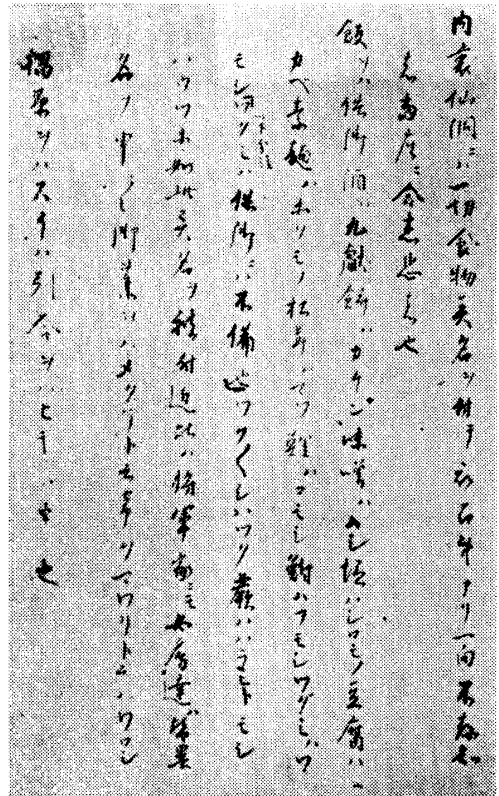 内裏仙洞ニハ一切食物異名ヲ付テ被召事ナリ一向不存知
者当座ニ令迷惑者也
飯ヲハ供御酒ハ九献餅ハカチン味噌ハムシ塩ハシロモノ豆腐ハ
カベ素麺ハホソモノ松茸ハマツ鯉ハコモシ鮒ハフモシツグミハツ
モシツグミハ供御ニハ不備也ツク〱シハツク蕨ハワラヒトモシ
ハウツホ如此異名ヲ被付近比ハ将軍家ニモ女房達皆異
名ヲ申ス御菜ヲハメクリト云常ヲマワリト云ハワロシ
椙原ヲハスイハ引合ヲハヒキハ云也